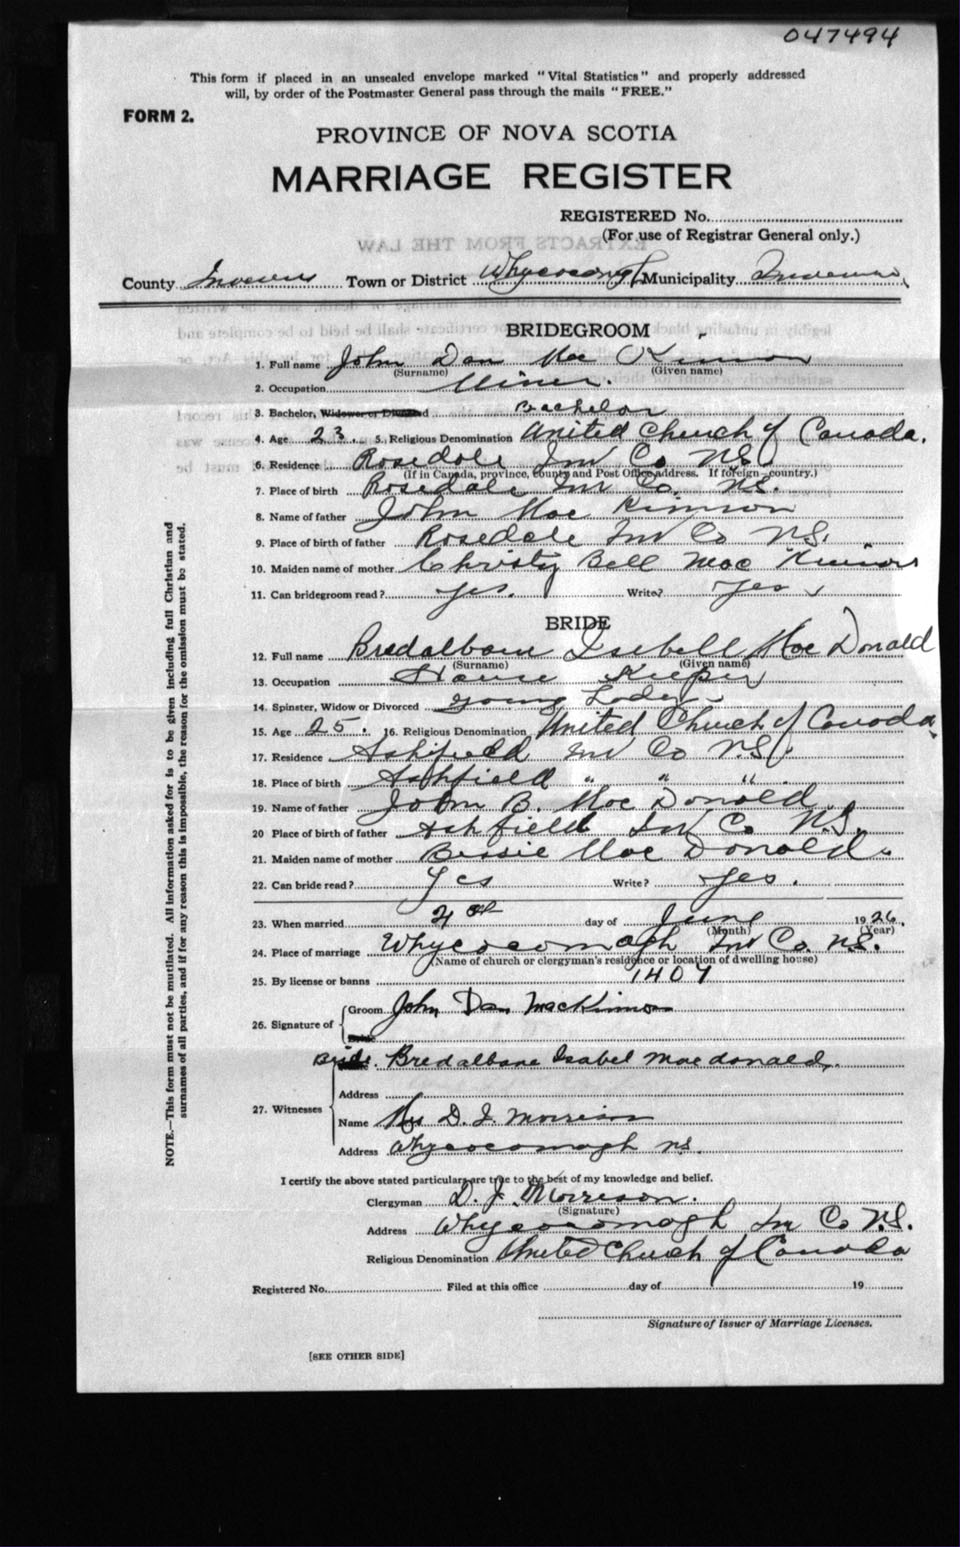 047494
This form if placed in an unsealed envelope marked "Vital Statistics" and properly addressed
will, by order of the Postmaster General pass through the mails "FREE."
FORM 2.
PROVINCE OF NOVA SCOTIA
MARRIAGE REGISTER
REGISTERED No.
(For use of Registrar General only.)
EXTRACTS FROM THE LAW
County Inverness Town or District Whycocomagh Municipality Inverness
BRIDEGROOM
1. Full name John Dan Mac Kinnon
(Surname) (Given name)
2. Occupation Miner.
3. Bachelor, Widower or Divorced Bachelor
4. Age 23. 5. Religious Denomination United Church of Canada.
6. Residence Rosedale Inv Co NS
(If in Canada, province, county and Post Office address. If foreign—country.)
7. Place of birth Rosedale Inv Co. NS.
8. Name of father John Mac Kinnon
9. Place of birth of father Rosedale Inv Co NS.
10. Maiden name of mother Christy Bell Mac Kinnon
11. Can bridegroom read? yes. Write? yes
BRIDE
12. Full name Bredalbain Isebell Mac Donald
(Surname) (Given name)
13. Occupation House Keeper
14. Spinster, Widow or Divorced young Lady
15. Age 25. 16. Religious Denomination United Church of Canada
17. Residence Ashfield Inv Co N.S.
18. Place of birth Ashfield " " "
19. Name of father John B. Mac Donald
20 Place of birth of father Ashfield Inv Co N.S.
21. Maiden name of mother Bessie Mac Donald.
22. Can bride read? Yes Write? yes.
23. When married day of June 1926.
(Month) (Year)
24. Place of marriage Whycocomagh Inv Co. NS.
(Name of church or clergyman's residence or location of dwelling house)
25. By license or banns
26. Signature of Groom John Dan MacKinnon
Bride. Bredalbane Isabel Macdonald.
27. Witnesses Address
Name Mrs D. J. Morrison
Address Whycocomagh NS.
I certify the above stated particulars are true to the best of my knowledge and belief.
Clergyman D. J. Morrison.
(Signature)
Address Whycocomagh Inv Co N.S.
Religious Denomination United Church of Canada
Registered No. Filed at this office day of 19
Signature of Issuer of Marriage Licenses.
[SEE OTHER SIDE]
NOTE.—This form must not be mutilated. All information asked for is to be given including full Christian and
surnames of all parties, and if for any reason this is impossible, the reason for the omission must be stated.